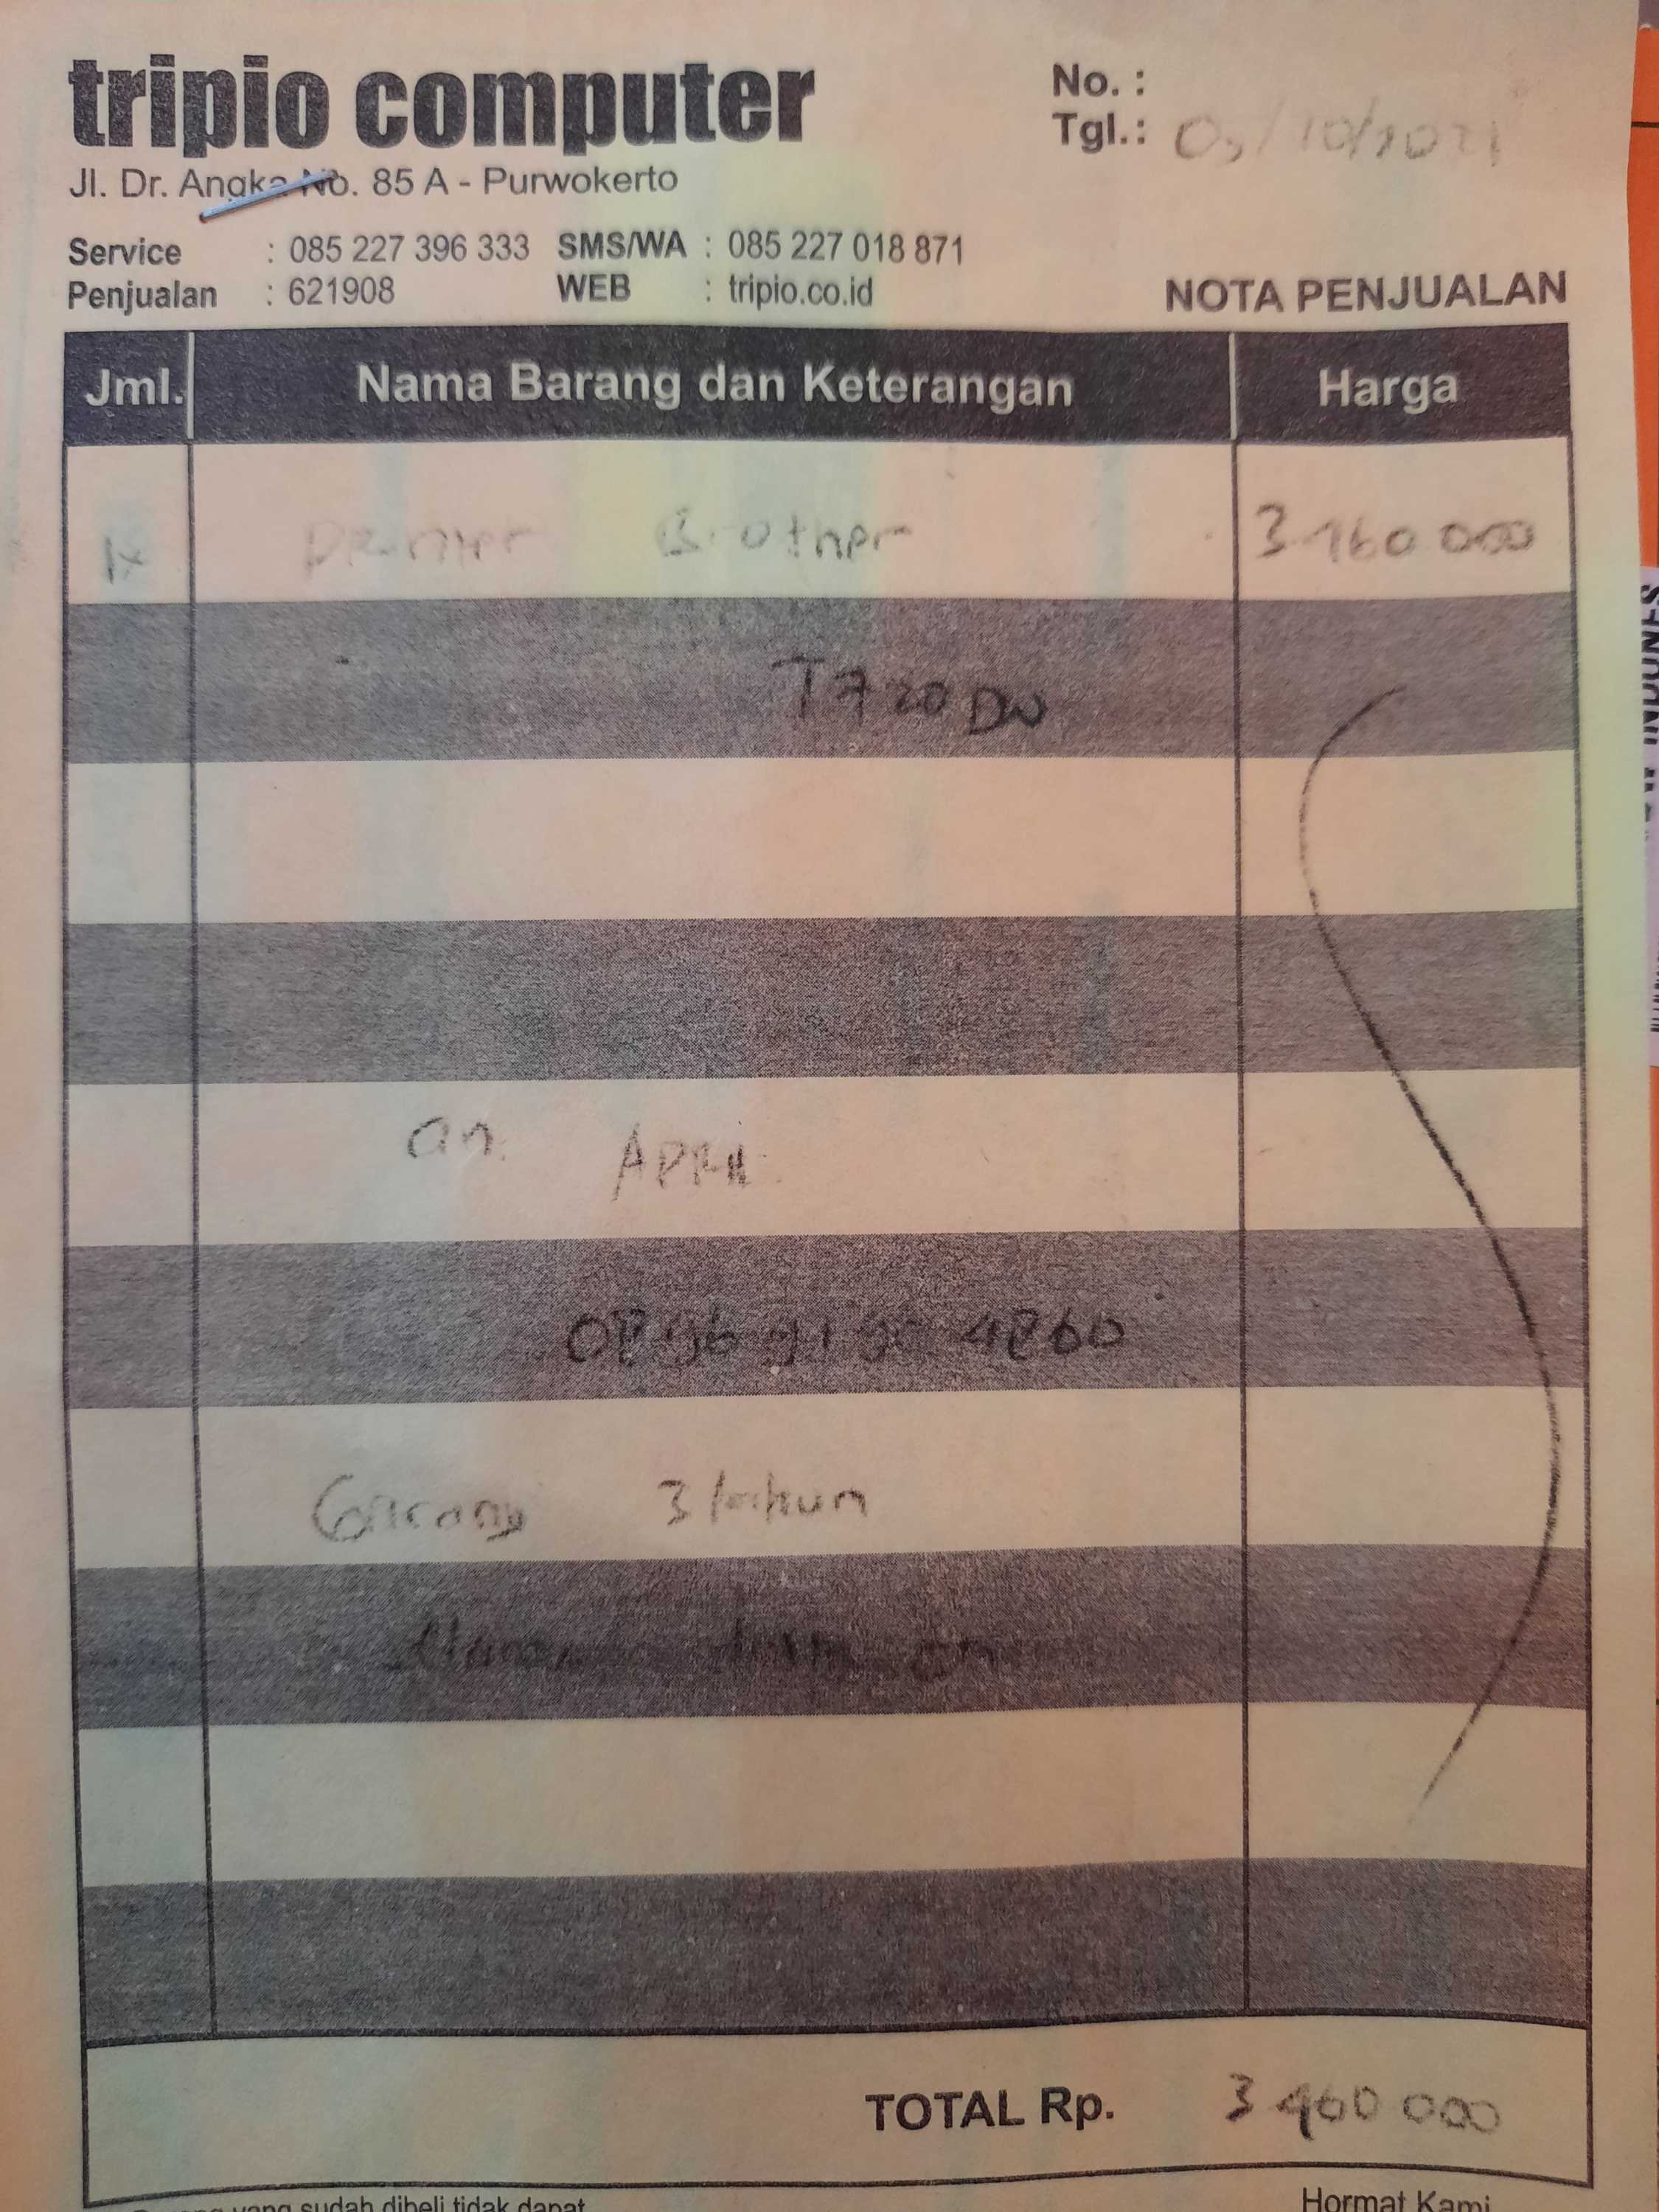 tripio computer
No. :
Tgl.: 05/10/2021
Jl. Dr. Angka No. 85 A - Purwokerto
Service : 085 227 396 333 SMS/WA : 085 227 018 871
Penjualan : 621908 WEB : tripio.co.id
NOTA PENJUALAN
Jml. Nama Barang dan Keterangan Harga
1x Printer Brother 3 460 000
T720DW
an. APRIL
4860
Garansi 3 tahun
TOTAL Rp. 3 460 000
yang sudah dibeli tidak dapat
Hormat Kami